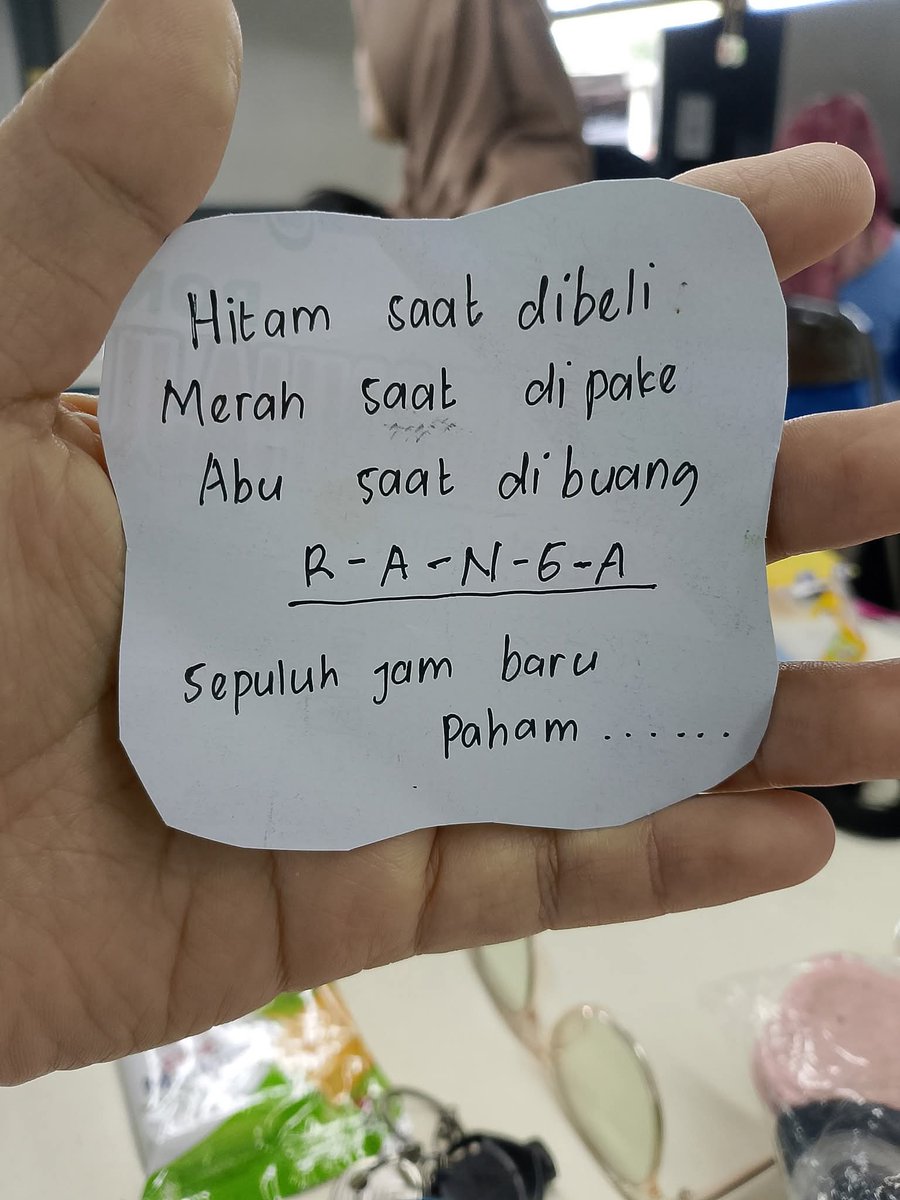 Hitam saat dibeli
Merah saat dipake
Abu saat dibuang
R-A-N-G-A
Sepuluh jam baru
paham .......